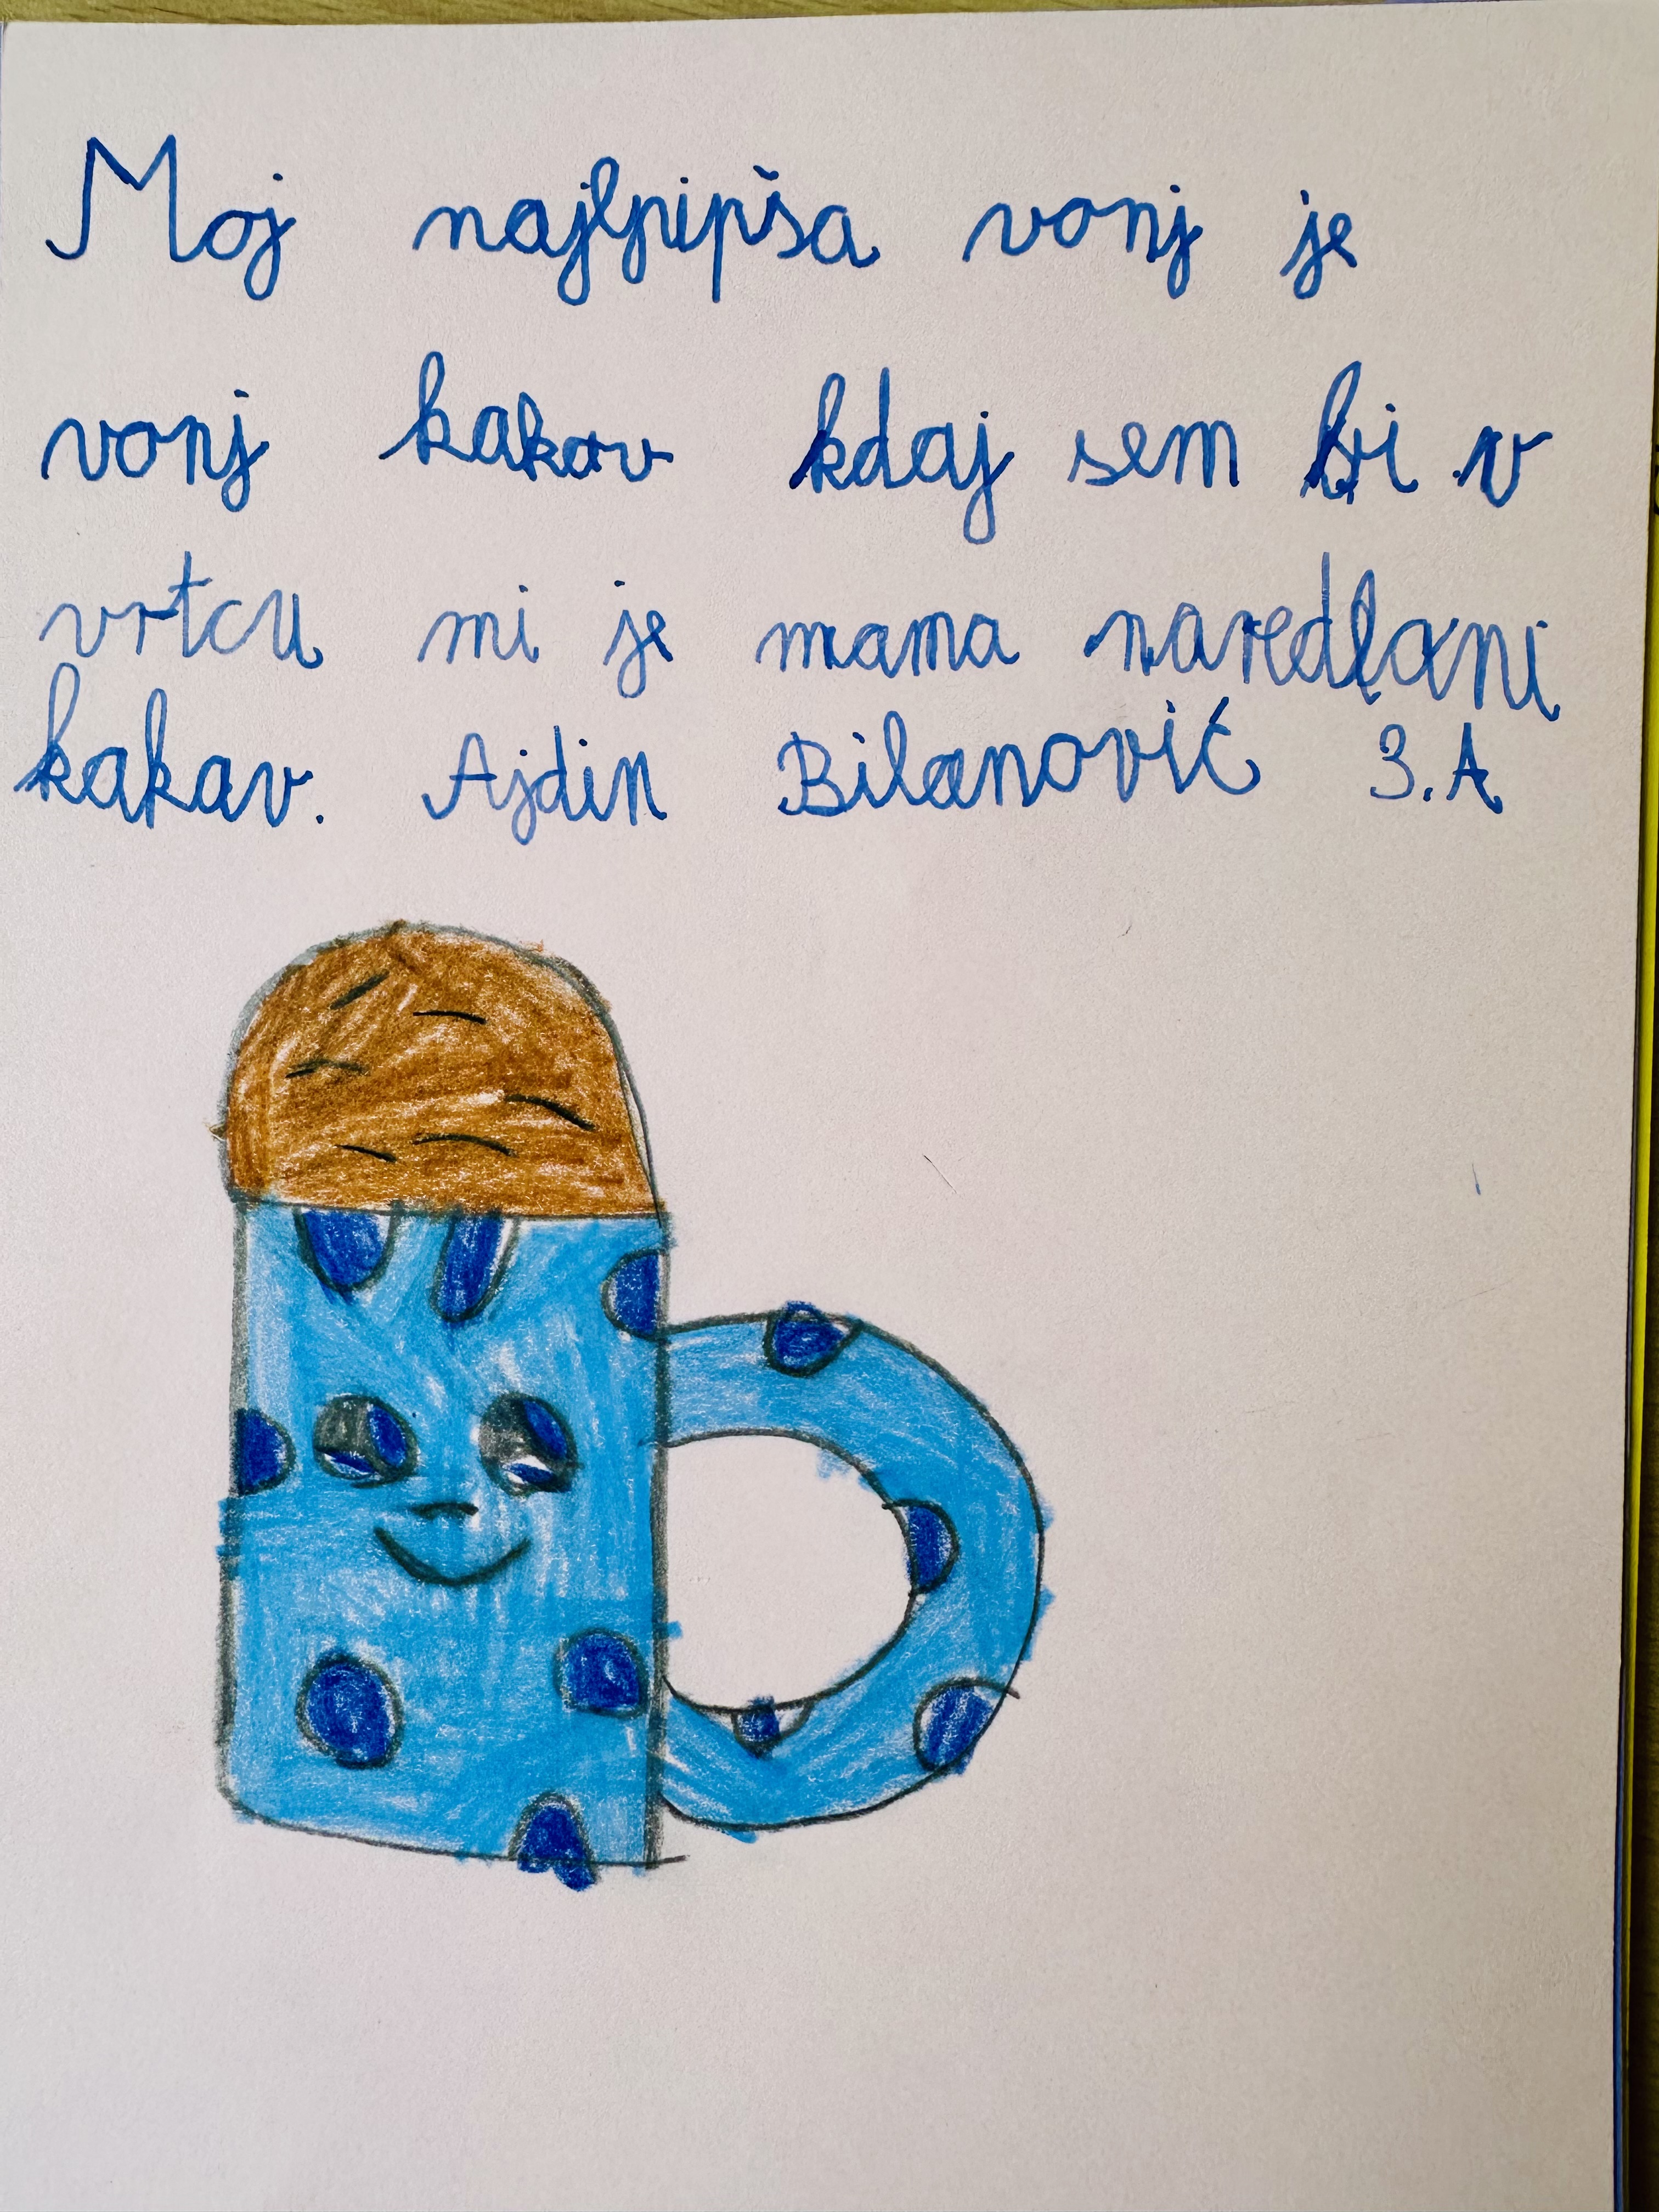 Moj najlpipša vonj je
vonj kakav kdaj sem bi v
vrtcu mi je mama naredlani
kakav. Ajdin Bilanović 3.A